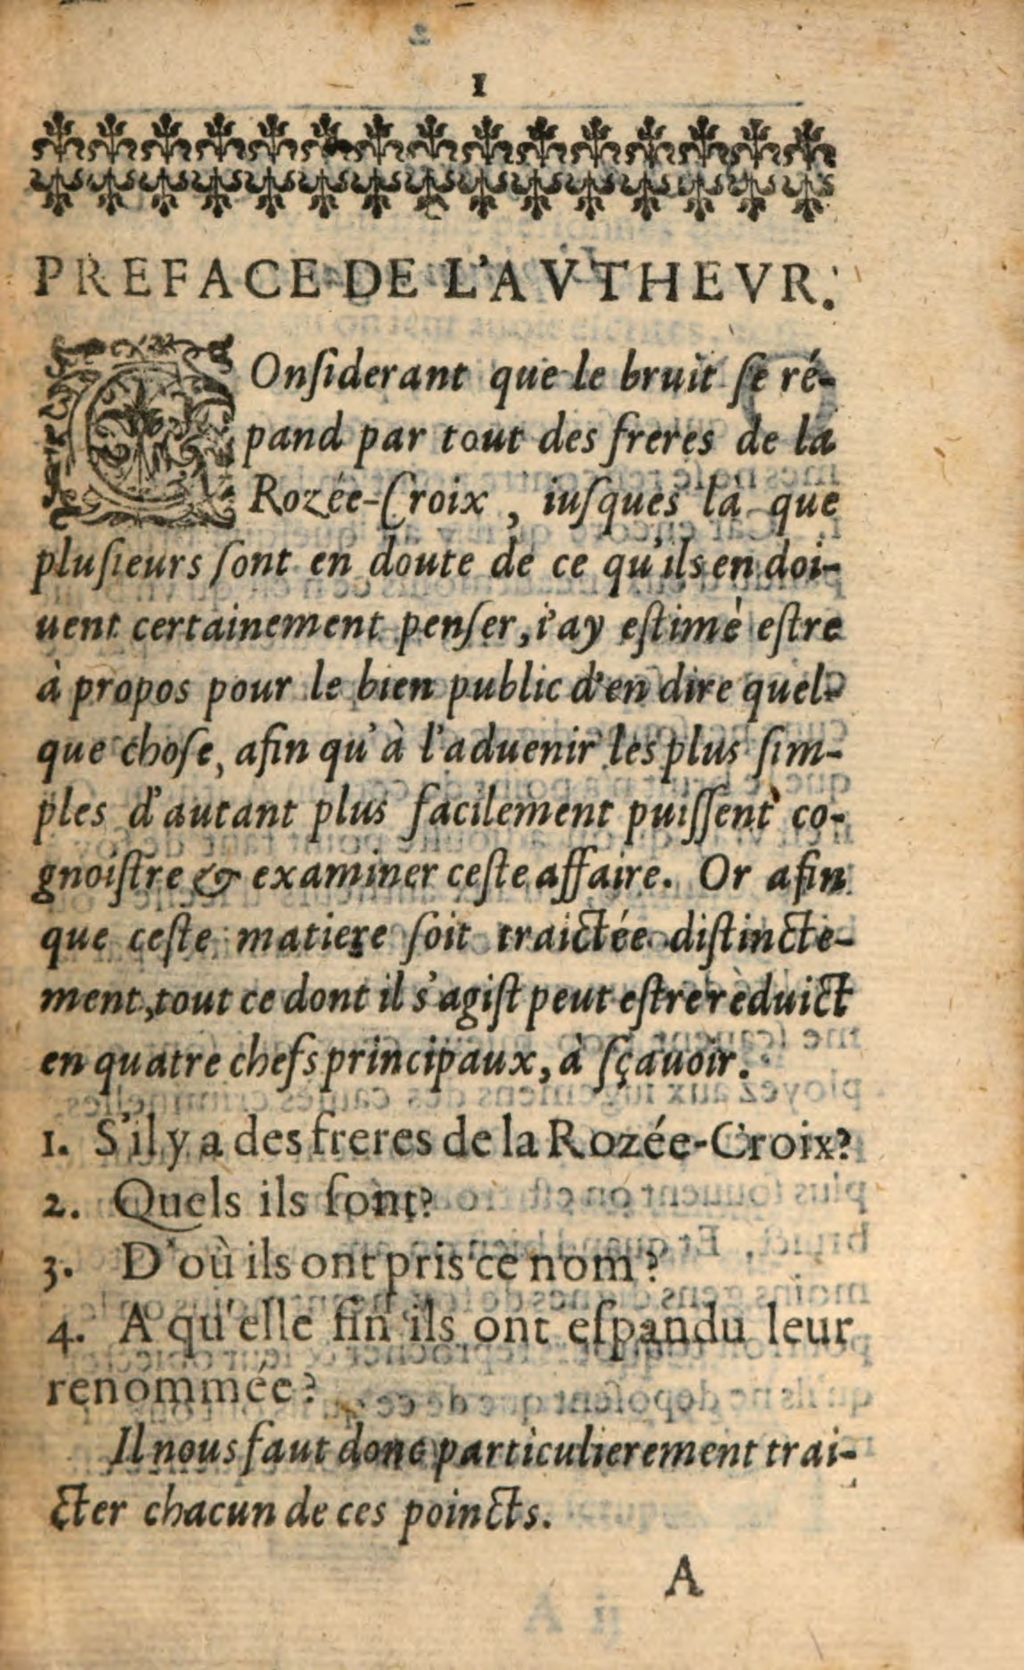 1
PREFACE DE L'AVTHEVR.
COnſiderant que le bruit ſe ré-
pand par tout des freres de la
Rozée-Croix, iuſques là que
pluſieurs ſont en doute de ce qu'ils en doi-
uent certainement penſer, i'ay eſtimé eſtre
à propos pour le bien public d'en dire quel-
que choſe, afin qu'à l'aduenir les plus ſim-
ples d'autant plus facilement puiſſent co-
gnoiſtre & examiner ceſte affaire. Or afin
que ceſte matiere ſoit traictée diſtincte-
ment, tout ce dont il s'agiſt peut eſtre reduict
en quatre chefs principaux, à ſçauoir.
1. S'il y a des freres de la Rozée-Croix?
2. Quels ils ſont?
3. D'où ils ont pris ce nom?
4. A qu'elle fin ils ont eſpandu leur
renommée?
Il nous faut donc particulierement trai-
cter chacun de ces poincts.
A